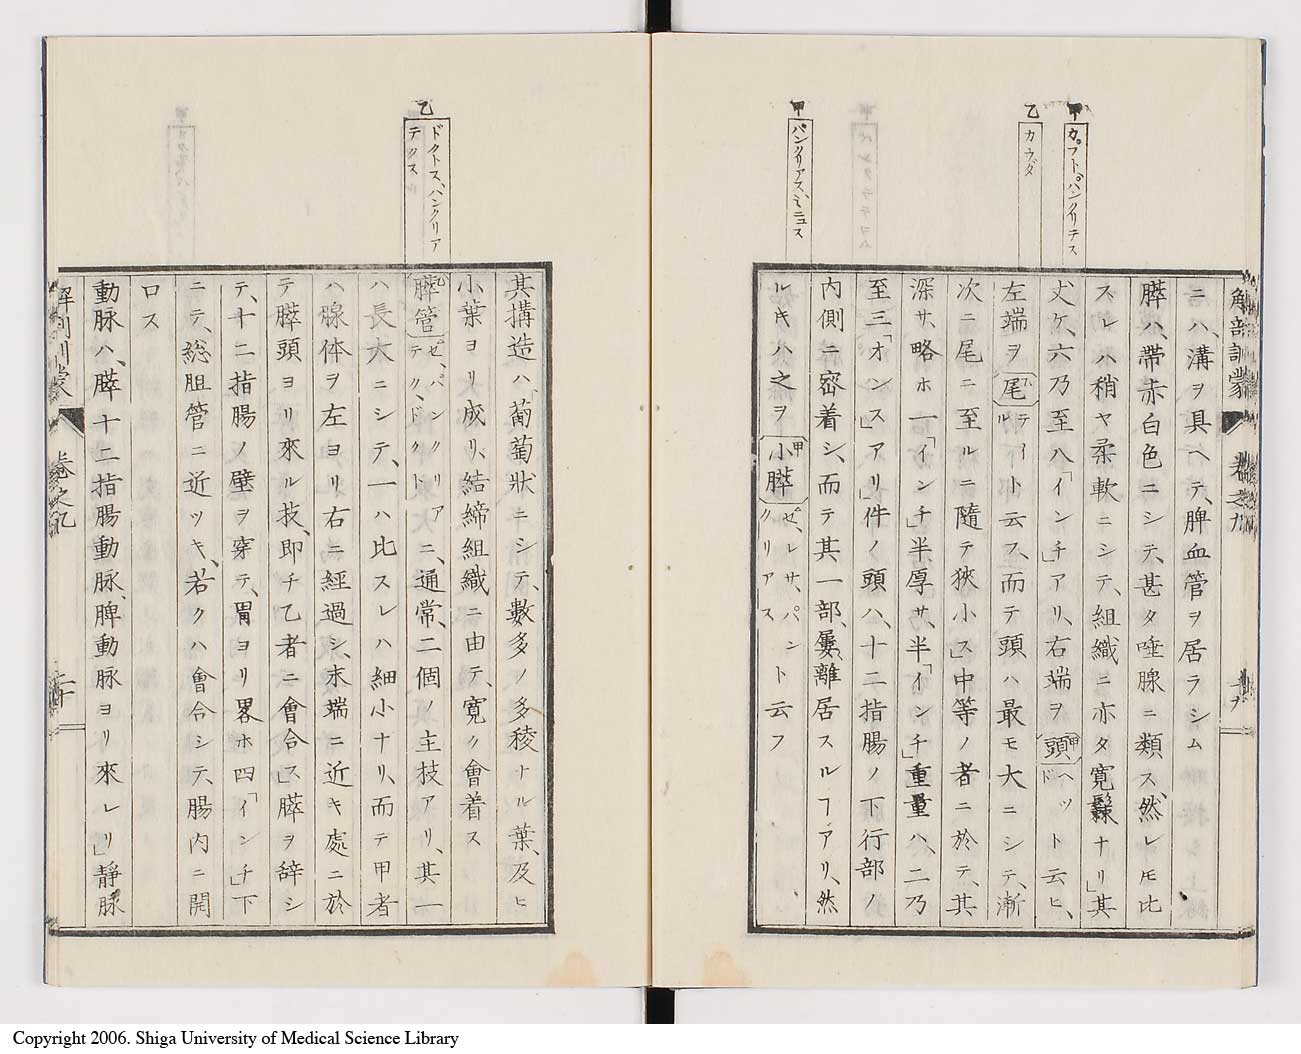 甲
カプトパンクリテス
乙
カウダ
甲
パンクリアス、ミニュス
解剖訓蒙 卷之九 十九
ニハ、溝ヲ具ヘテ、脾血管ヲ居ラシム
膵ハ、帶赤白色ニシテ、甚タ唾腺ニ類ス、然レ𪜈比
スレハ稍ヤ柔軟ニシテ、組織ニ亦タ寛鬆ナリ」其
丈ケ、六乃至八「インチ」アリ、右端ヲ頭甲ヘット云ヒ、
左端ヲ尾乙テイルト云フ、而テ頭ハ最モ大ニシテ、漸
次ニ尾ニ至ルニ隨テ狹小ス」中等ノ者ニ於テ、其
深サ、略ホ一「インチ」半厚サ、半「インチ」重量ハ、二乃
至三「オンス」アリ」件ノ頭ハ、十二指腸ノ下行部ノ
内側ニ密着シ、而テ其一部、屢離居スルヿアリ、然
ルキハ之ヲ小膵甲ゼ、レサ、パンクリアスト云フ
乙
ドクトス、パンクリア
テックス
其搆造ハ、葡萄狀ニシテ、數多ノ多稜ナル葉、及ヒ
小葉ヨリ成リ、結締組織ニ由テ、寛ク會着ス
膵管乙ゼ、パンクリアテク、ドクドニ、通常、二個ノ主枝アリ、其一
ハ長大ニシテ、一ハ比スレハ細小ナリ、而テ甲者
ハ腺体ヲ左ヨリ右ニ經過シ、末端ニ近キ處ニ於
テ膵頭ヨリ來ル技、即チ乙者ニ會合ス」膵ヲ辞シ
テ、十二指腸ノ壁ヲ穿テ、胃ヨリ畧ホ四「インチ」下
ニテ、総胆管ニ近ツキ、若クハ會合シテ、腸内ニ開
ロス
動脉ハ、膵十二指腸動脉、脾動脉ヨリ來レリ」靜脉
解剖訓蒙 卷之九 二十
Copyright 2006. Shiga University of Medical Science Library